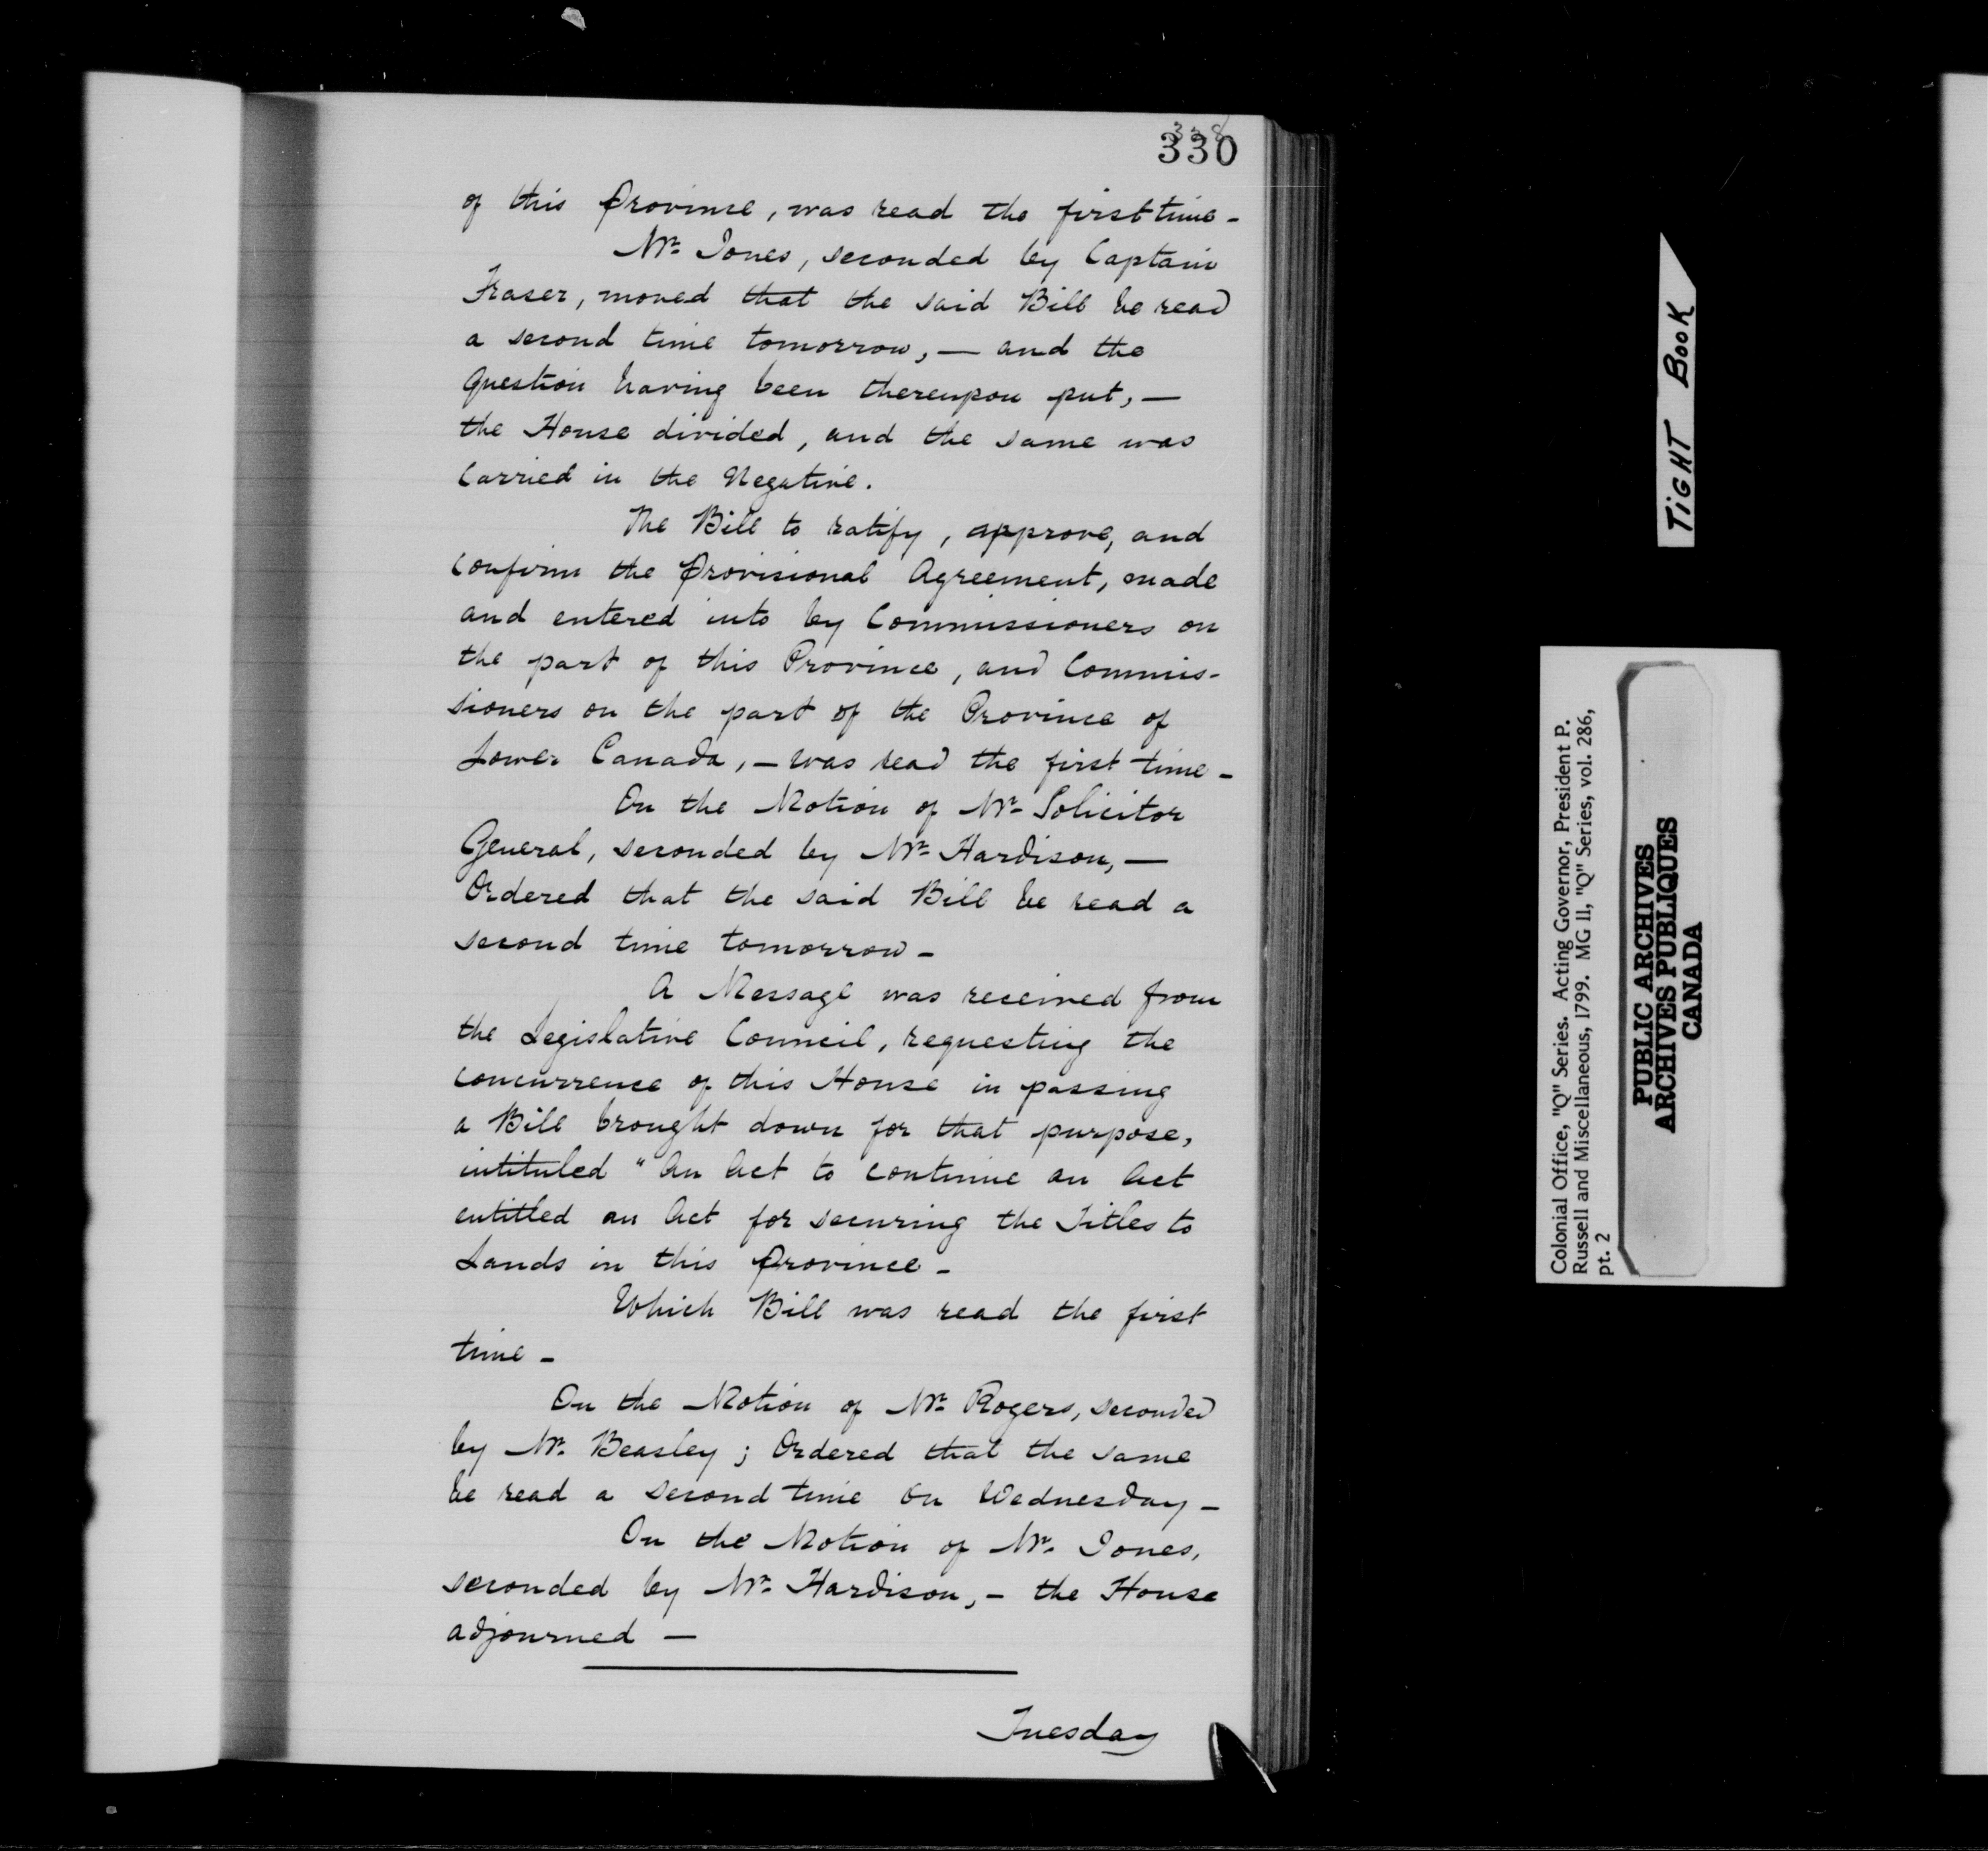 328
330
of this Province, was read the first time -
Mr. Jones, seconded by Captain
Fraser, moved that the said Bill be read
a second time tomorrow, — and the
question having been thereupon put, —
the House divided, and the same was
carried in the Negative.
The Bill to ratify, approve, and
confirm the Provisional Agreement, made
and entered into by Commissioners on
the part of this Province, and Commis-
sioners on the part of the Province of
Lower Canada, - was read the first time -
On the Motion of Mr. Solicitor
General, seconded by Mr. Hardison, —
Ordered that the said Bill be read a
second time tomorrow -
A Message was received from
the Legislative Council, requesting the
concurrence of this House in passing
a Bill brought down for that purpose,
intituled "An Act to continue an Act
entitled an Act for securing the Titles to
Lands in this Province -
Which Bill was read the first
time -
On the Motion of Mr. Rogers, seconded
by Mr. Beasley; Ordered that the same
be read a second time on Wednesday -
On the Motion of Mr. Jones,
seconded by Mr. Hardison, - the House
adjourned —
Tuesday
TIGHT BOOK
Colonial Office, "Q" Series. Acting Governor, President P.
Russell and Miscellaneous, 1799. MG 11, "Q" Series, vol. 286,
pt. 2
PUBLIC ARCHIVES
ARCHIVES PUBLIQUES
CANADA